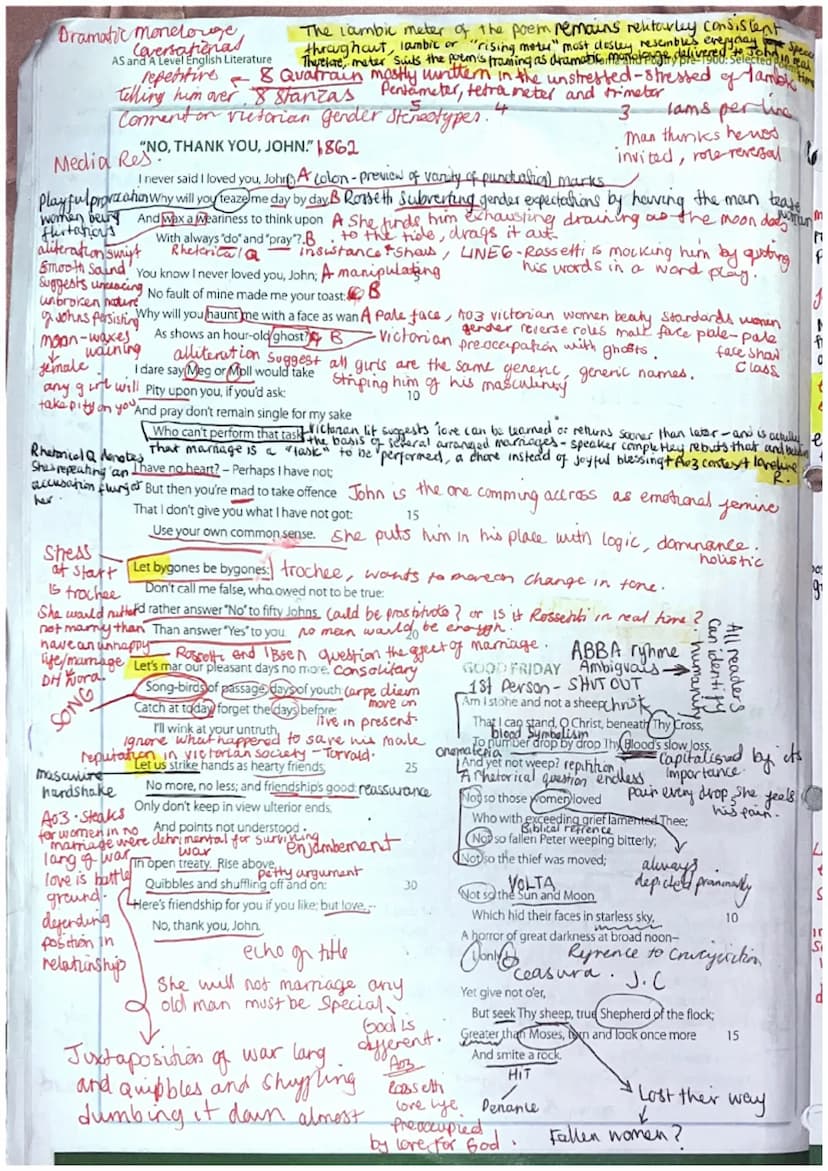 Dramatic Monolouge
Coversational
The iambic meter of the poem remains relitavley consistent
throughout, iambic or "rising meter" most closley resembles everyday speech
Therefore, meter suits the poem's framing as dramatic monologue delivered to John in real time
AS and A Level English Literature
Poetry pre-1900: Selected Poems
repetitive
telling him over
8 Quatrain mostly written in the unstressed-stressed of Iamb
8 stanzas
Pentameter, tetrameter and trimeter
5 4 3 Iams per line
Comment on Victorian gender stereotypes.
Man thinks he was
invited, role-reversal
"NO, THANK YOU, JOHN." 1862
Media Res.
I never said I loved you, John: A colon - preview of varity of punctuation marks
Playful provocation
women being
flirtatious
Why will you teaze me day by day, B Rossetti subverting gender expectations by having the man tease woman
And wax a weariness to think upon A She finds him exhausting draining as the moon does
With always "do" and "pray"? B to the tide, drags it out
Rhetorical Q
insistance + shows, LINE 6 - Rossetti is mocking him by quoting
his words in a word play.
aliteration swift
smooth sound
suggests unceasing
unbroken nature
of Johns persisting
moon-waxes
waining
female.
any girl will
take pity on you
You know I never loved you, John; A manipulating
No fault of mine made me your toast: B
Why will you haunt me with a face as wan A Pale face, AO3 victorian women beaty standards women
As shows an hour-old ghost? B
gender reverse roles male face pale - pale
face show
class
Victorian preoccupation with ghosts.
alliteration suggest all girls are the same generic, generic names.
I dare say Meg or Moll would take
Striping him of his masculinity
Pity upon you, if you'd ask: 10
And pray don't remain single for my sake
Who can't perform that task.
Victorian lit suggests 'love can be learned' or returns sooner than later - and is actually
the basis of several arranged marriages - speaker completley rebuts that and
that marriage is a "task" to be "performed, a chore instead of joyful blessing + AO3 context
Rhetorical Q denotes
She's repeating an
accusation flung at
her.
I have no heart? – Perhaps I have not;
But then you're mad to take offence John is the one comming accross as emotional femine
That I don't give you what I have not got: 15
Use your own common sense. She puts him in his place with logic, dominance.
holistic
Stress
at start
is trochee
Let bygones be bygones: trochee, wants to move on change in tone.
Don't call me false, who owed not to be true:
She would rather
not marry than
have an unhappy
life/marriage
DH Nora.
I'd rather answer "No" to fifty Johns Could be prostitute? or is it Rossetti in real time?
Than answer "Yes" to you. no man would be enough. 20
Rossetti and Ibsen question the effect of marriage.
Let's mar our pleasant days no more, Consolitary
SONG
Song-birds of passage, days of youth: Carpe diem
Catch at today, forget the days before: move on
live in present
I'll wink at your untruth.
ignore what happened to save his male
reputation in victorian society - Torvald.
Let us strike hands as hearty friends; 25
masculine
handshake
No more, no less; and friendship's good: reassurance
Only don't keep in view ulterior ends,
And points not understood
AO3 - Steaks
for women in no
marriage were detrimental for surviving
lang of war
love is battle
ground.
defending
position in
relationship
enjambement
war
In open treaty. Rise above
petty argument
Quibbles and shuffling off and on: 30
Here's friendship for you if you like; but love, –
No, thank you, John.
echo of title
She will not marriage any
old man must be special
Juxtaposition of war lang
and quibbles and shuffling
dumbing it down almost
God is
different.
AO3
Rossetti
love life
preoccupied
by love for God.
ABBA ryhme
Ambiguous
All readers
can identify
humanity
GOOD FRIDAY
1st Person - SHUT OUT
Am I stone and not a sheep
christ
That I can stand, O Christ, beneath Thy Cross,
blood symbolism
To number drop by drop Thy Blood's slow loss,
onematopeia
Capitalised by its
importance.
And yet not weep? repitition
A rhetorical question endless
pain every drop, she feels
his pain.
Not so those women loved
Who with exceeding grief lamented Thee;
Biblical refrence
Not so fallen Peter weeping bitterly;
Not so the thief was moved;
always
depicted
VOLTA
Not so the Sun and Moon
Which hid their faces in starless sky, 10
A horror of great darkness at broad noon–
I, only I.
Refrence to Crucyfiction
J.C
Ceasura.
Yet give not o'er,
But seek Thy sheep, true Shepherd of the flock;
Greater than Moses, turn and look once more 15
And smite a rock.
HIT
Penance
Lost their way
Fallen women?